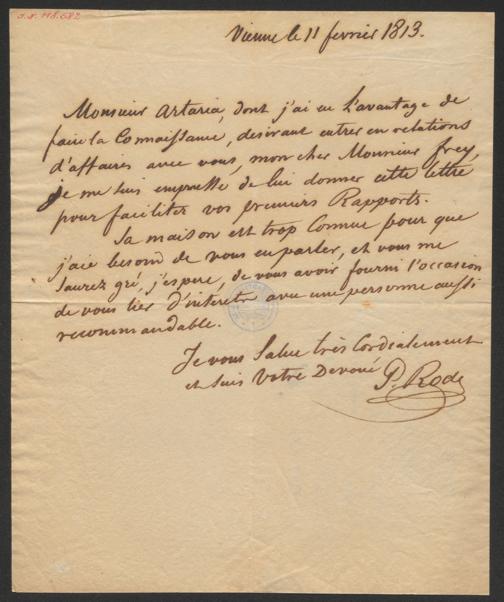 J.N. 118.682
Vienne le 11 fevrier 1813.
Monsieur Artaria, dont j'ai eu l'avantage de
faire la Connaissance, desirant entrer en relations
d'affaires avec vous, mon cher Monsieur frey,
je me suis empressé de lui donner cette lettre
pour faciliter vos premiers Rapports.
Sa maison est trop Connue pour que
j'aie besoin de vous en parler, et vous me
saurez gré, j'espere, de vous avoir fourni l'occasion
de vous lier d'interets avec une personne aussi
recommandable.
Je vous Salue très Cordialement
et suis Votre Devoué P. Rode